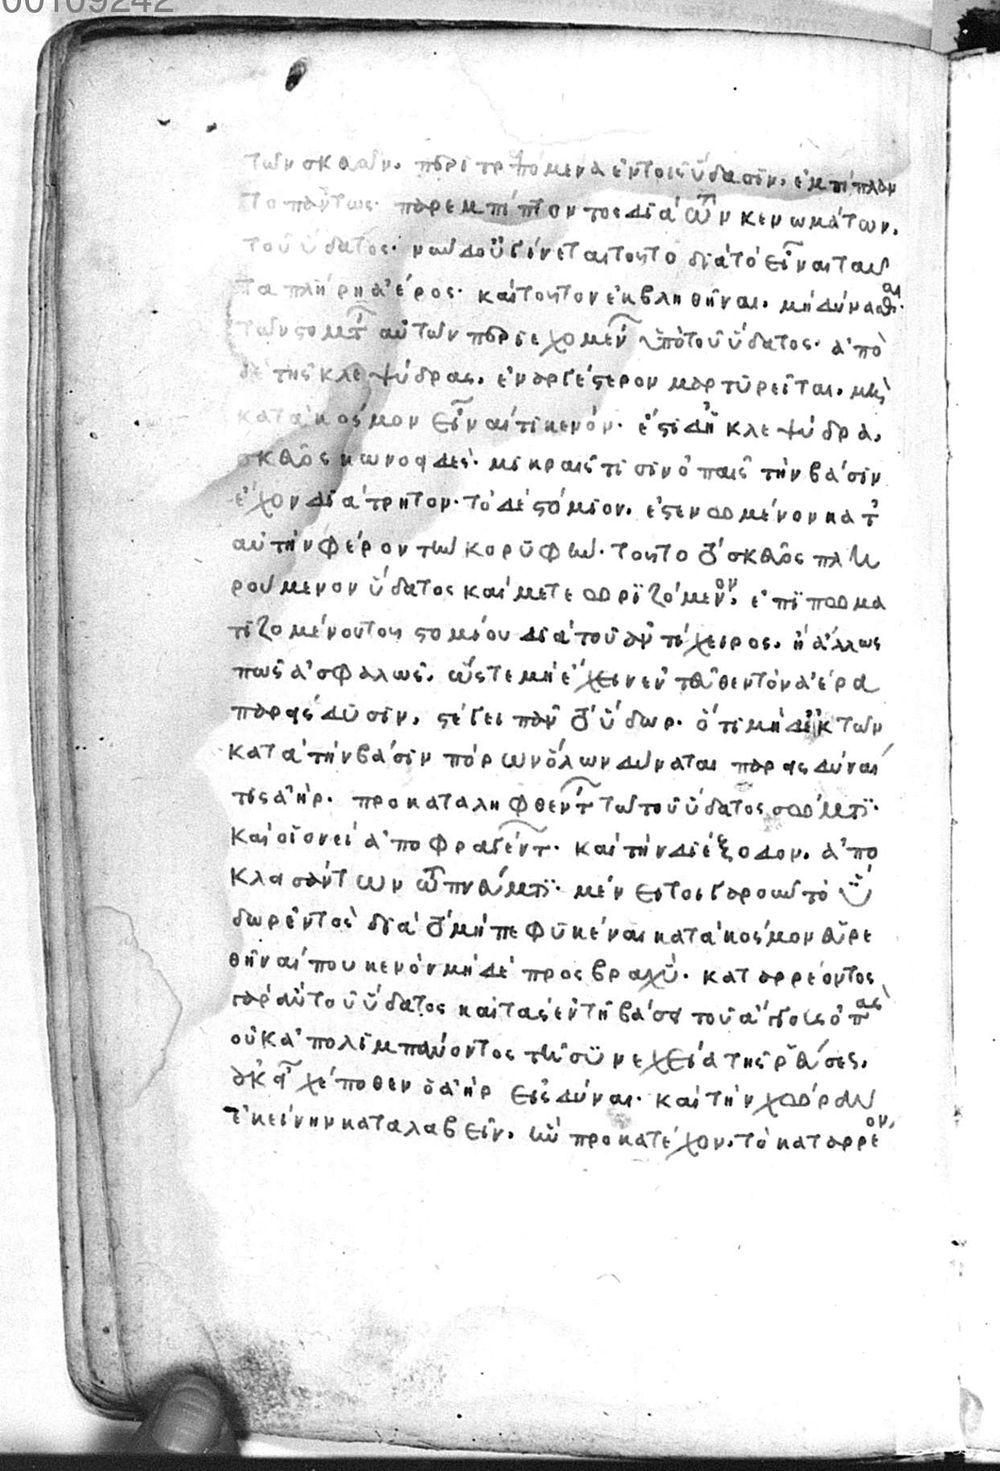 00109242
τῶν σκευῶν. περιτρεπόμενα ἐν τοῖς ὕδασιν. ἐμπίπλαν
το πάντως· παρεμπίπτοντος διὰ τῶν κενωμάτων.
τοῦ ὕδατος· γίνεται τοῦτο διὰ τὸ εἶναι ταῦ
τα πλήρη ἀέρος· καὶ τοῦτον ἐκβληθῆναι. μὴ δύνασθαι·
τῶν στομάτ αὐτῶν περιεχομέν ὑπὸ τοῦ ὕδατος· ἀπὸ
δὲ τῆς κλεψύδρας. ἐναργέστερον μαρτυρεῖται. μὴ
κατὰ κόσμον εἶναί τι κενόν· ἔστι δὴ κλεψύδρα.
σκεῦος κωνοειδές· μικραῖς τισιν ὀπαῖς τὴν βάσιν
ἔχον διάτρητον· τὸ δὲ στόμιον. ἐστενωμένον κατ
αὐτὴν φέρον τὴν κορυφήν· τοῦτο τὸ σκεῦος πλη
ρούμενον ὕδατος καὶ μετεωριζόμενον. ἐπιπωμα
τιζομένου τοῦ στομίου διὰ τοῦ ἀντίχειρος. ἢ ἄλλως
πως ἀσφαλῶς. ὥστε μὴ ἔχειν ἐνταῦθεν τὸν ἀέρα
παρεισδύσιν. στέγει πᾶν τὸ ὕδωρ. ὅτι μὴ δ ἐκ τῶν
κατὰ τὴν βάσιν πόρων ὅλων δύναται παρεισδύναί
τις ἀήρ. προκαταληφθέντ τῶ τοῦ ὕδατος σώματι·
καὶ οἱονεὶ ἀποφραγέντ· καὶ τὴν διέξοδον. ἀπο
κλασάντων πνεύματι· μένει τοιγαροῦν τὸ ὕ
δωρ ἐντὸς διὰ τὸ μὴ πεφυκέναι κατὰ κόσμον εὑρε
θῆναί που κενὸν μηδὲ πρὸς βραχύ· καταρρέοντος
γὰρ αὐτοῦ ὕδατος καὶ τὰς ἐν τῇ βάσει τοῦ ἀγγείου ὀπὰς
οὐκ ἀπολιμπάνοντος τῇ συνεχείᾳ τῆς ῥεύσεως.
οὐκ εἶχέ ποθεν ὁ ἀὴρ εἰσδῦναι· καὶ τὴν χώραν
ἐκείνην καταλαβεῖν. ἣν προκατέχον. τὸ καταρρέον,